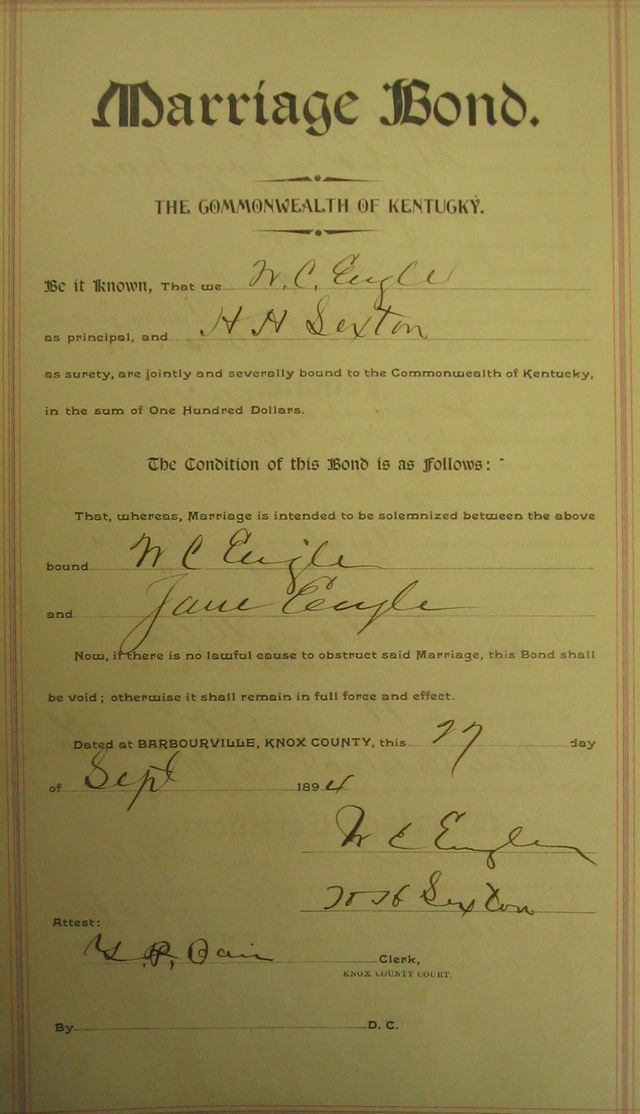 Marriage Bond.
THE COMMONWEALTH OF KENTUCKY.
Be it Known, That we W. C. Engle
as principal, and H H Sexton
as surety, are jointly and severally bound to the Commonwealth of Kentucky,
in the sum of One Hundred Dollars.
The Condition of this Bond is as Follows:
That, whereas, Marriage is intended to be solemnized between the above
bound W C Engle
and Jane Engle
Now, if there is no lawful cause to obstruct said Marriage, this Bond shall
be void; otherwise it shall remain in full force and effect.
Dated at BARBOURVILLE, KNOX COUNTY, this 27 day
of Sept 1894
W C Engle
H H Sexton
Attest:
Clerk,
KNOX COUNTY COURT.
By D. C.